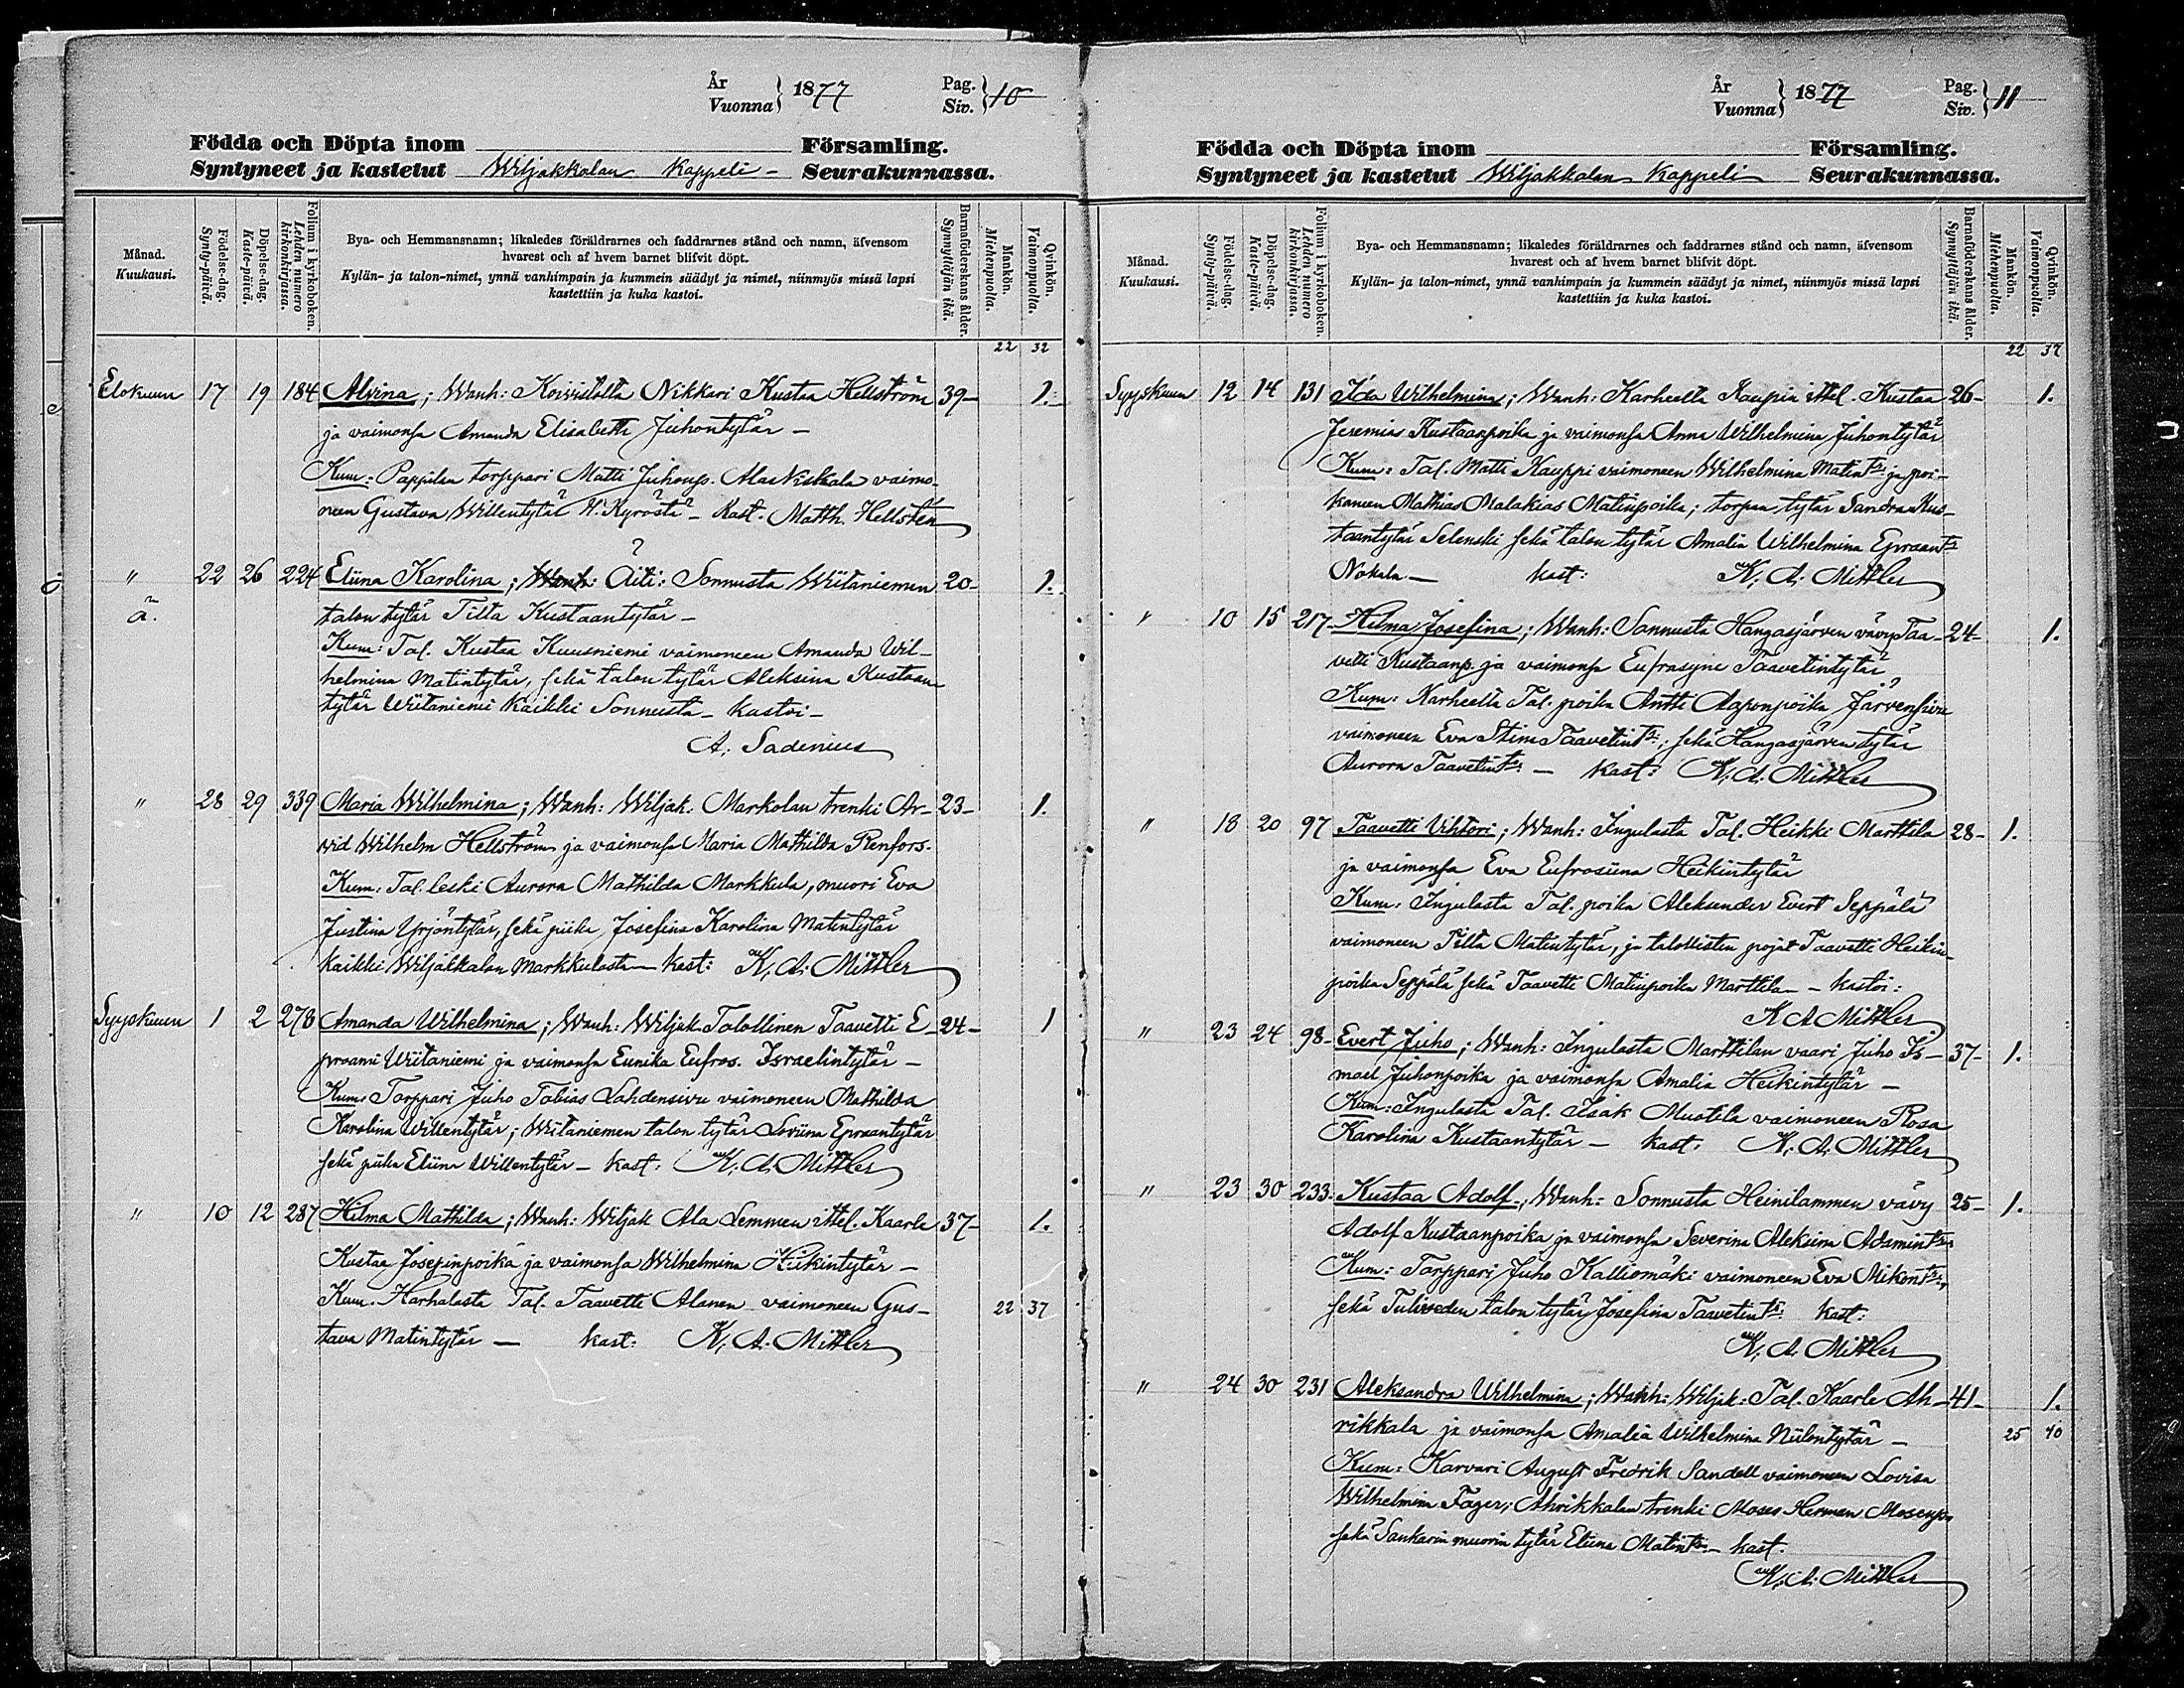 År
Vuonna } 1877
Pag.
Siv. } 10
Födda och Döpta inom Församling.
Syntyneet ja kastetut Wiljakkalan Kappeli- Seurakunnassa.
Månad.
Kuukausi.
Födelse-dag.
Synty-päivä.
Döpelse-dag.
Kaste-päivä.
Folium i kyrkoboken.
Lehden numero
kirkonkirjassa.
Bya- och Hemmansnamn; likaledes föräldrarnes och faddrarnes stånd och namn, äfvensom
hvarest och af hvem barnet blifvit döpt.
Kylän- ja talon-nimet, ynnä vanhimpain ja kummein säädyt ja nimet, niinmyös missä lapsi
kastettiin ja kuka kastoi.
Barnaföderskans ålder.
Synnyttäjän ikä.
Mankön.
Miehenpuolta.
Qvinkön.
Vaimonpuolta.
22 32
Elokuun 17 19 184 Alvina; Wanh: Koivistolta Nikkari Kustaa Hellström 39- 1.
ja vaimonsa Amanda Elisabetti Juhontytär -
Kum: Pappilan torppari Matti Juhonp. Alaniskala vaimo-
neen Gustava Willentytär H. Kyröstä - Kast. Matth. Hellstén
" 22 26 224 Eliina Karolina; Wanh: Äiti: Sonnusta Wiitaniemen 20- 1.
ä. talon tytär Tilta Kustaantytär -
Kum: Tal. Kustaa Kuusniemi vaimoneen Amanda Wil-
helmina Matintytär, sekä talon tytär Aleksina Kustaan-
tytär Wiitaniemi Kaikki Sonnusta - Kastoi -
A. Sadenius
" 28 29 339 Maria Wilhelmina; Wanh: Wiljak. Markolan trenki Ar- 23- 1.
vid Wilhelm Hellström ja vaimonsa Maria Mathilda Renfors.
Kum: Tal. leski Aurora Mathilda Markkula, muori Eva
Justina Yrjöntytär, sekä piika Josefina Karolina Matintytär
Kaikki Wiljakkalan Markkulasta - Kast: K. A. Mittler
Syyskuun 1 2 278 Amanda Wilhelmina; Wanh: Wiljak. Talollinen Taavetti E- 24- 1
praami Wiitaniemi ja vaimonsa Eunika Eufros. Israelintytär -
Kum: Torppari Juho Tobias Lahdensivu vaimoneen Mathilda
Karolina Willentytär; Wiitaniemen talon tytär Loviina Epraantytär
sekä piika Eliina Willentytär - Kast: K. A. Mittler
" 10 12 287 Hilma Mathilda; Wanh: Wiljak Ala Lemmen ittel. Kaarle 37- 1.
Kustaa Josepinpoika ja vaimonsa Wilhelmina Heikintytär -
Kum. Harhalasta Tal. Taavetti Alanen vaimoneen Gus- 22 37
tava Matintytär - Kast: K. A. Mittler
År
Vuonna } 1877
Pag.
Siv. } 11
Födda och Döpta inom Församling.
Syntyneet ja kastetut Wiljakkalan Kappeli Seurakunnassa.
Månad.
Kuukausi.
Födelse-dag.
Synty-päivä.
Döpelse-dag.
Kaste-päivä.
Folium i kyrkoboken.
Lehden numero
kirkonkirjassa.
Bya- och Hemmansnamn; likaledes föräldrarnes och faddrarnes stånd och namn, äfvensom
hvarest och af hvem barnet blifvit döpt.
Kylän- ja talon-nimet, ynnä vanhimpain ja kummein säädyt ja nimet, niinmyös missä lapsi
kastettiin ja kuka kastoi.
Barnaföderskans ålder.
Synnyttäjän ikä.
Mankön.
Miehenpuolta.
Qvinkön.
Vaimonpuolta.
22 37
Syyskuun 12 14 131 Iida Wilhelmina; Wanh: Karheella Kaupin ittel. Kustaa 26- 1.
Jeremias Kustaanpoika ja vaimonsa Anna Wilhelmina Juhontytär
Kum: Tal. Matti Kauppi vaimoneen Wilhelmina Matint:r ja poi-
kaneen Mathias Malakias Matinpoika; torpan tytär Sandra Kus-
taantytär Selenski sekä talon tytär Amalia Wilhelmina Epraant:r
Nokala - Kast: K. A. Mittler
" 10 15 217 Hilma Josefina; Wanh: Sonnusta Hangasjärven vävy Taa- 24- 1.
vetti Kustaanp. ja vaimonsa Eufrasyne Taavetintytär
Kum: Karheelta Tal. poika Antti Aaponpoika Järvensivu
vaimoneen Eva Stina Taavetint:r; sekä Hangasjärven tytär
Aurora Taavetint:r - Kast: K. A. Mittler
" 18 20 97 Taavetti Vihtori; Wanh: Inkulasta Tal. Heikki Marttila 28- 1.
ja vaimonsa Eva Eufrosiina Heikintytär
Kum: Ingulasta Tal. poika Aleksander Evert Seppälä
vaimoneen Tilta Matintytär, ja talollisten pojat Taavetti Heikin-
poika Seppälä sekä Taavetti Matinpoika Marttila - Kastoi:
K A Mittler
" 23 24 98 Evert Juho; Wanh: Ingulasta Marttilan vaari Juho Is- 37- 1.
mael Juhonpoika ja vaimonsa Amalia Heikintytär -
Kum: Ingulasta Tal. Isak Muotila vaimoneen Rosa
Karolina Kustaantytär - Kast: K. A. Mittler
" 23 30 233 Kustaa Adolf; Wanh: Sonnusta Heinilammen vävy 25- 1.
Adolf Kustaanpoika ja vaimonsa Severina Aleksina Adamint:r
Kum: Torppari Juho Kalliomäki vaimoneen Eva Mikont:r,
sekä Tuliveden talon tytär Josefina Taavetint:r Kast:
K. A. Mittler
" 24 30 231 Aleksandra Wilhelmina; Wanh: Wiljak: Tal. Kaarle Ah- 41- 1.
rikkala ja vaimonsa Amalia Wilhelmina Niilontytär - 25 40
Kum: Karvari August Fredrik Sandell vaimoneen Lovisa
Wilhelmina Fager; Ahrikkalan trenki Moses Herman Mosenp.
sekä Sankarin muorin tytär Eliina Matint:r - Kast.
K. A. Mittler